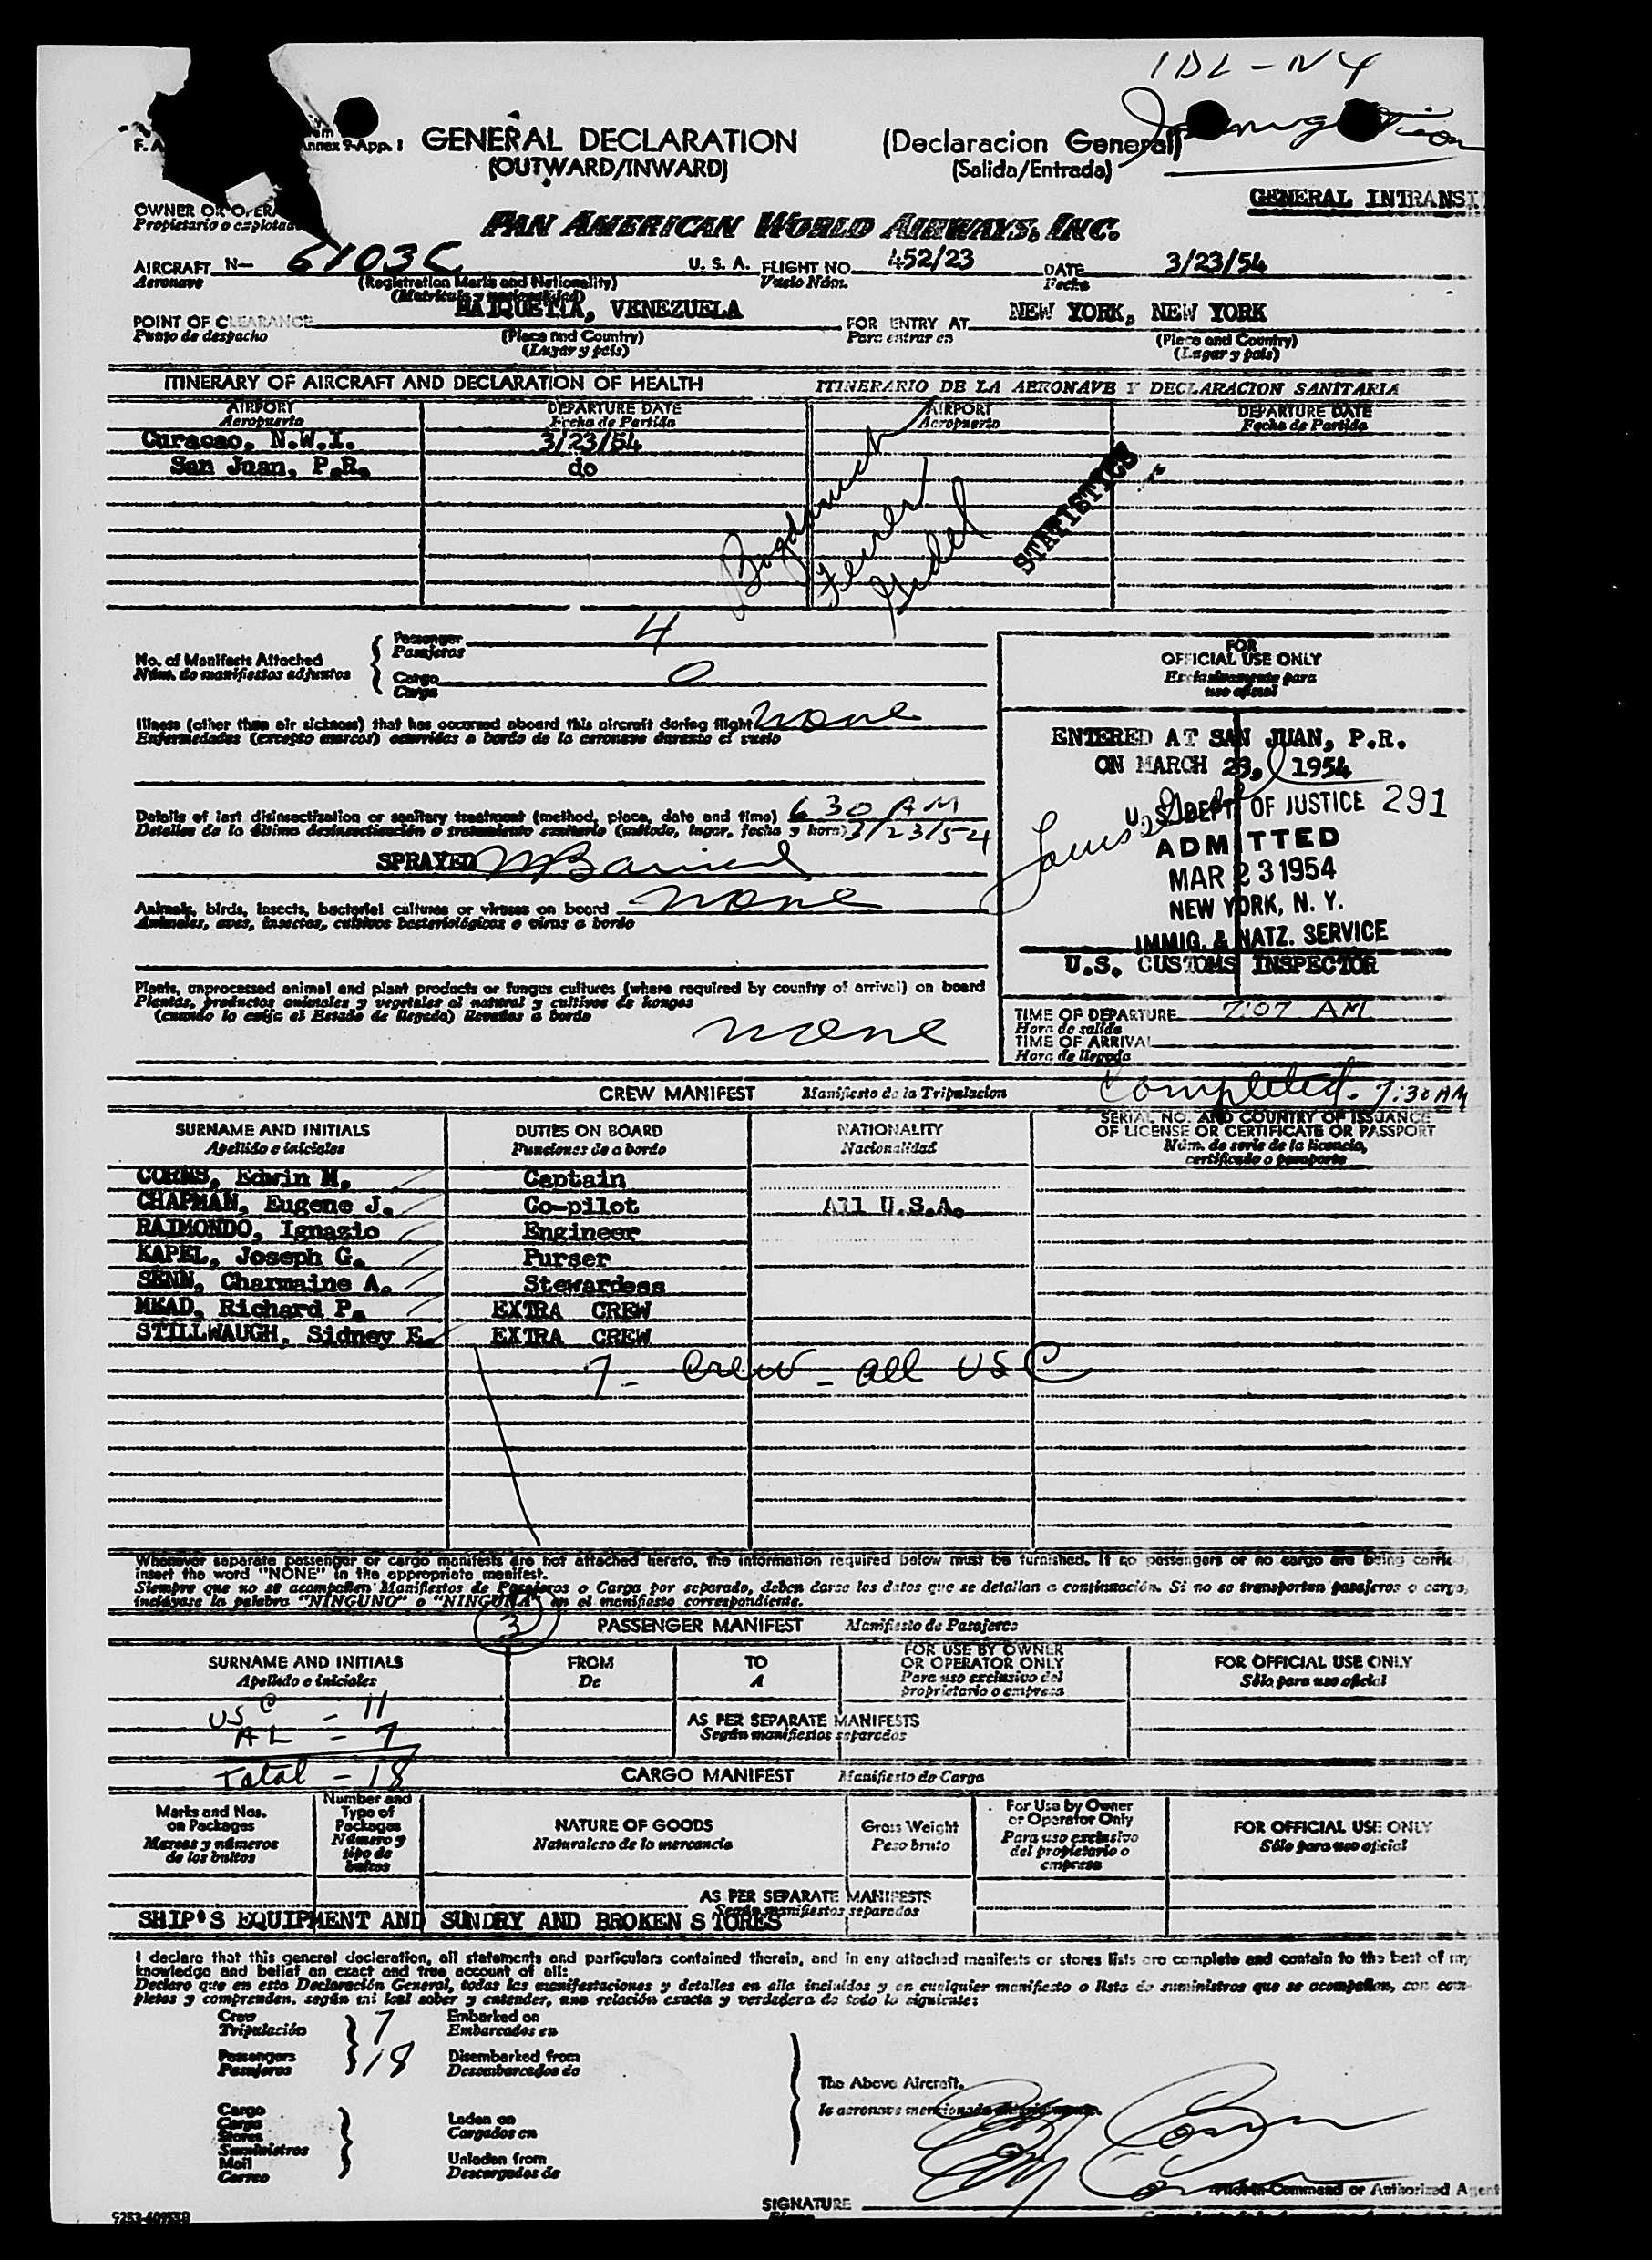 IDL-NY
Immigration
F. A
Annex 9-App. 1
GENERAL DECLARATION (Declaracion General)
(OUTWARD/INWARD) (Salida/Entrada)
GENERAL INTRANSI
OWNER OR OPERA
Propietario o explotado
PAN AMERICAN WORLD AIRWAYS, INC.
AIRCRAFT N- 6103C U. S. A. FLIGHT NO. 452/23 DATE 3/23/54
Aeronave (Registration Marks and Nationality) Vuelo Núm. Fecha
(Matrícula y nacionalidad)
POINT OF CLEARANCE MAIQUETIA, VENEZUELA FOR ENTRY AT NEW YORK, NEW YORK
Punto de despacho (Place and Country) Para entrar en (Place and Country)
(Lugar y país) (Lugar y país)
ITINERARY OF AIRCRAFT AND DECLARATION OF HEALTH ITINERARIO DE LA AERONAVE Y DECLARACION SANITARIA
AIRPORT DEPARTURE DATE AIRPORT DEPARTURE DATE
Aeropuerto Fecha de Partida Aeropuerto Fecha de Partida
Curacao, N.W.I. 3/23/54
San Juan, P.R. do
STATISTICS
No. of Manifests Attached
Núm. de manifiestos adjuntos
Passenger 4
Pasajeros
Cargo 0
Carga
Illness (other than air sickness) that has occurred aboard this aircraft during flight none
Enfermedades (excepto mareos) ocurridas a bordo de la aeronave durante el vuelo
Details of last disinsectization or sanitary treatment (method, place, date and time) 6 30 AM
Detalles de la última desinsectización o tratamiento sanitario (método, lugar, fecha y hora) 3/23/54
SPRAYED
Animals, birds, insects, bacterial cultures or viruses on board none
Animales, aves, insectos, cultivos bacteriológicos o virus a bordo
Plants, unprocessed animal and plant products or fungus cultures (where required by country of arrival) on board
Plantas, productos animales y vegetales al natural y cultivos de hongos
(cuando lo exija el Estado de llegada) llevados a bordo
none
FOR
OFFICIAL USE ONLY
Exclusivamente para
uso oficial
ENTERED AT SAN JUAN, P.R.
ON MARCH 23, 1954
U. S. DEPT. OF JUSTICE 291
ADMITTED
MAR 23 1954
NEW YORK, N. Y.
IMMIG. & NATZ. SERVICE
U.S. CUSTOMS INSPECTOR
TIME OF DEPARTURE 7:07 AM
Hora de salida
TIME OF ARRIVAL
Hora de llegada
Completed. 7:30 AM
CREW MANIFEST Manifiesto de la Tripulacion
SURNAME AND INITIALS DUTIES ON BOARD NATIONALITY SERIAL NO. AND COUNTRY OF ISSUANCE
OF LICENSE OR CERTIFICATE OR PASSPORT
Apellido e iniciales Funciones de a bordo Nacionalidad Núm. de serie de la licencia,
certificado o pasaporte
CORNS, Edwin M. Captain
CHAPMAN, Eugene J. Co-pilot All U.S.A.
RAIMONDO, Ignazio Engineer
KAPEL, Joseph G. Purser
SENN, Charmaine A. Stewardess
MEAD, Richard P. EXTRA CREW
STILLWAUGH, Sidney E. EXTRA CREW
7 - Crew - all USC
Whenever separate passenger or cargo manifests are not attached hereto, the information required below must be furnished. If no passengers or no cargo are being carried,
insert the word "NONE" in the appropriate manifest.
Siempre que no se acompañen Manifiestos de Pasajeros o Carga por separado, deben darse los datos que se detallan a continuación. Si no se transportan pasajeros o carga,
inclúyase la palabra "NINGUNO" o "NINGUNA" en el manifiesto correspondiente.
3 PASSENGER MANIFEST Manifiesto de Pasajeros
SURNAME AND INITIALS FROM TO FOR USE BY OWNER
OR OPERATOR ONLY FOR OFFICIAL USE ONLY
Apellido e iniciales De A Para uso exclusivo del
propietario o empresa Sólo para uso oficial
USC - 11
AL - 7
AS PER SEPARATE MANIFESTS
Según manifiestos separados
Total - 18
CARGO MANIFEST Manifiesto de Carga
Marks and Nos.
on Packages
Marcas y números
de los bultos
Number and
Type of
Packages
Número y
tipo de
bultos
NATURE OF GOODS
Naturaleza de la mercancía
Gross Weight
Peso bruto
For Use by Owner
or Operator Only
Para uso exclusivo
del propietario o
empresa
FOR OFFICIAL USE ONLY
Sólo para uso oficial
AS PER SEPARATE MANIFESTS
Según manifiestos separados
SHIP'S EQUIPMENT AND SUNDRY AND BROKEN STORES
I declare that this general declaration, all statements and particulars contained therein, and in any attached manifests or stores lists are complete and contain to the best of my
knowledge and belief an exact and true account of all:
Declaro que en esta Declaración General, todas las manifestaciones y detalles en ella incluidos y en cualquier manifiesto o lista de suministros que se acompañan, con com-
pletos y comprenden, según mi leal saber y entender, una relación exacta y verdadera de todo lo siguiente:
Crew 7 Embarked on
Tripulación Embarcados en
Passengers 18 Disembarked from
Pasajeros Desembarcados de
The Above Aircraft.
la aeronave mencionada
Cargo Laden on
Carga Cargados en
Stores
Suministros
Mail Unladen from
Correo Descargados de
SIGNATURE
Pilot-in-Command or Authorized Agent